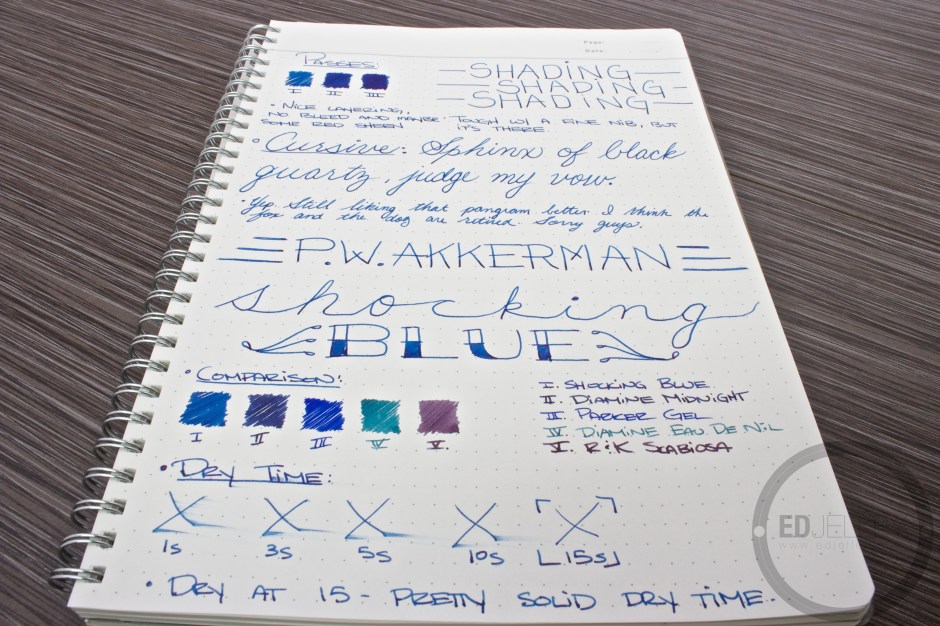 Page:
Date:
Passes
SHADING
SHADING
SHADING
I II III
• Nice layering,
no bleed and maybe
some red sheen
• Tough w/ a fine nib, but
it's there.
• Cursive: Sphinx of black
quartz, judge my vow.
• Yep. Still liking that pangram better. I think the
fox and the dog are retired. Sorry guys.
P.W. AKKERMAN
shocking
BLUE
• Comparison:
I II III IV V.
I. Shocking Blue
II. Diamine Midnight
III. Parker Gel
IV. Diamine Eau De Nil
V. R:K Scabiosa
• Dry Time:
1s 3s 5s 10s 15s
• Dry at 15 - Pretty solid dry time.
EDJEL